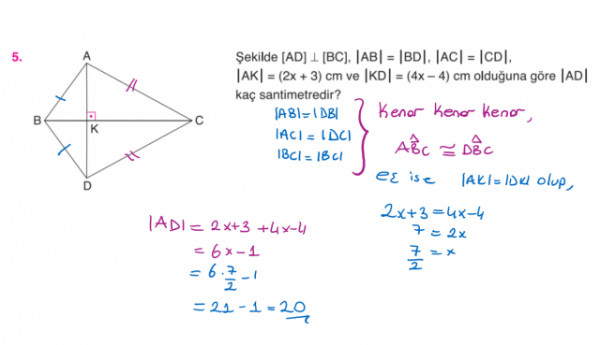 5.
Şekilde [AD] ⊥ [BC], |AB| = |BD|, |AC| = |CD|,
|AK| = (2x + 3) cm ve |KD| = (4x – 4) cm olduğuna göre |AD|
kaç santimetredir?
A
B
K
C
D
|AB| = |DB|
|AC| = |DC|
|BC| = |BC|
Kenar Kenar Kenar,
ABC ≅ DBC
eş ise |AK| = |DK| olup,
2x+3 = 4x-4
7 = 2x
7/2 = x
|AD| = 2x+3 +4x-4
= 6x-1
= 6·7/2 -1
= 21 - 1 = 20